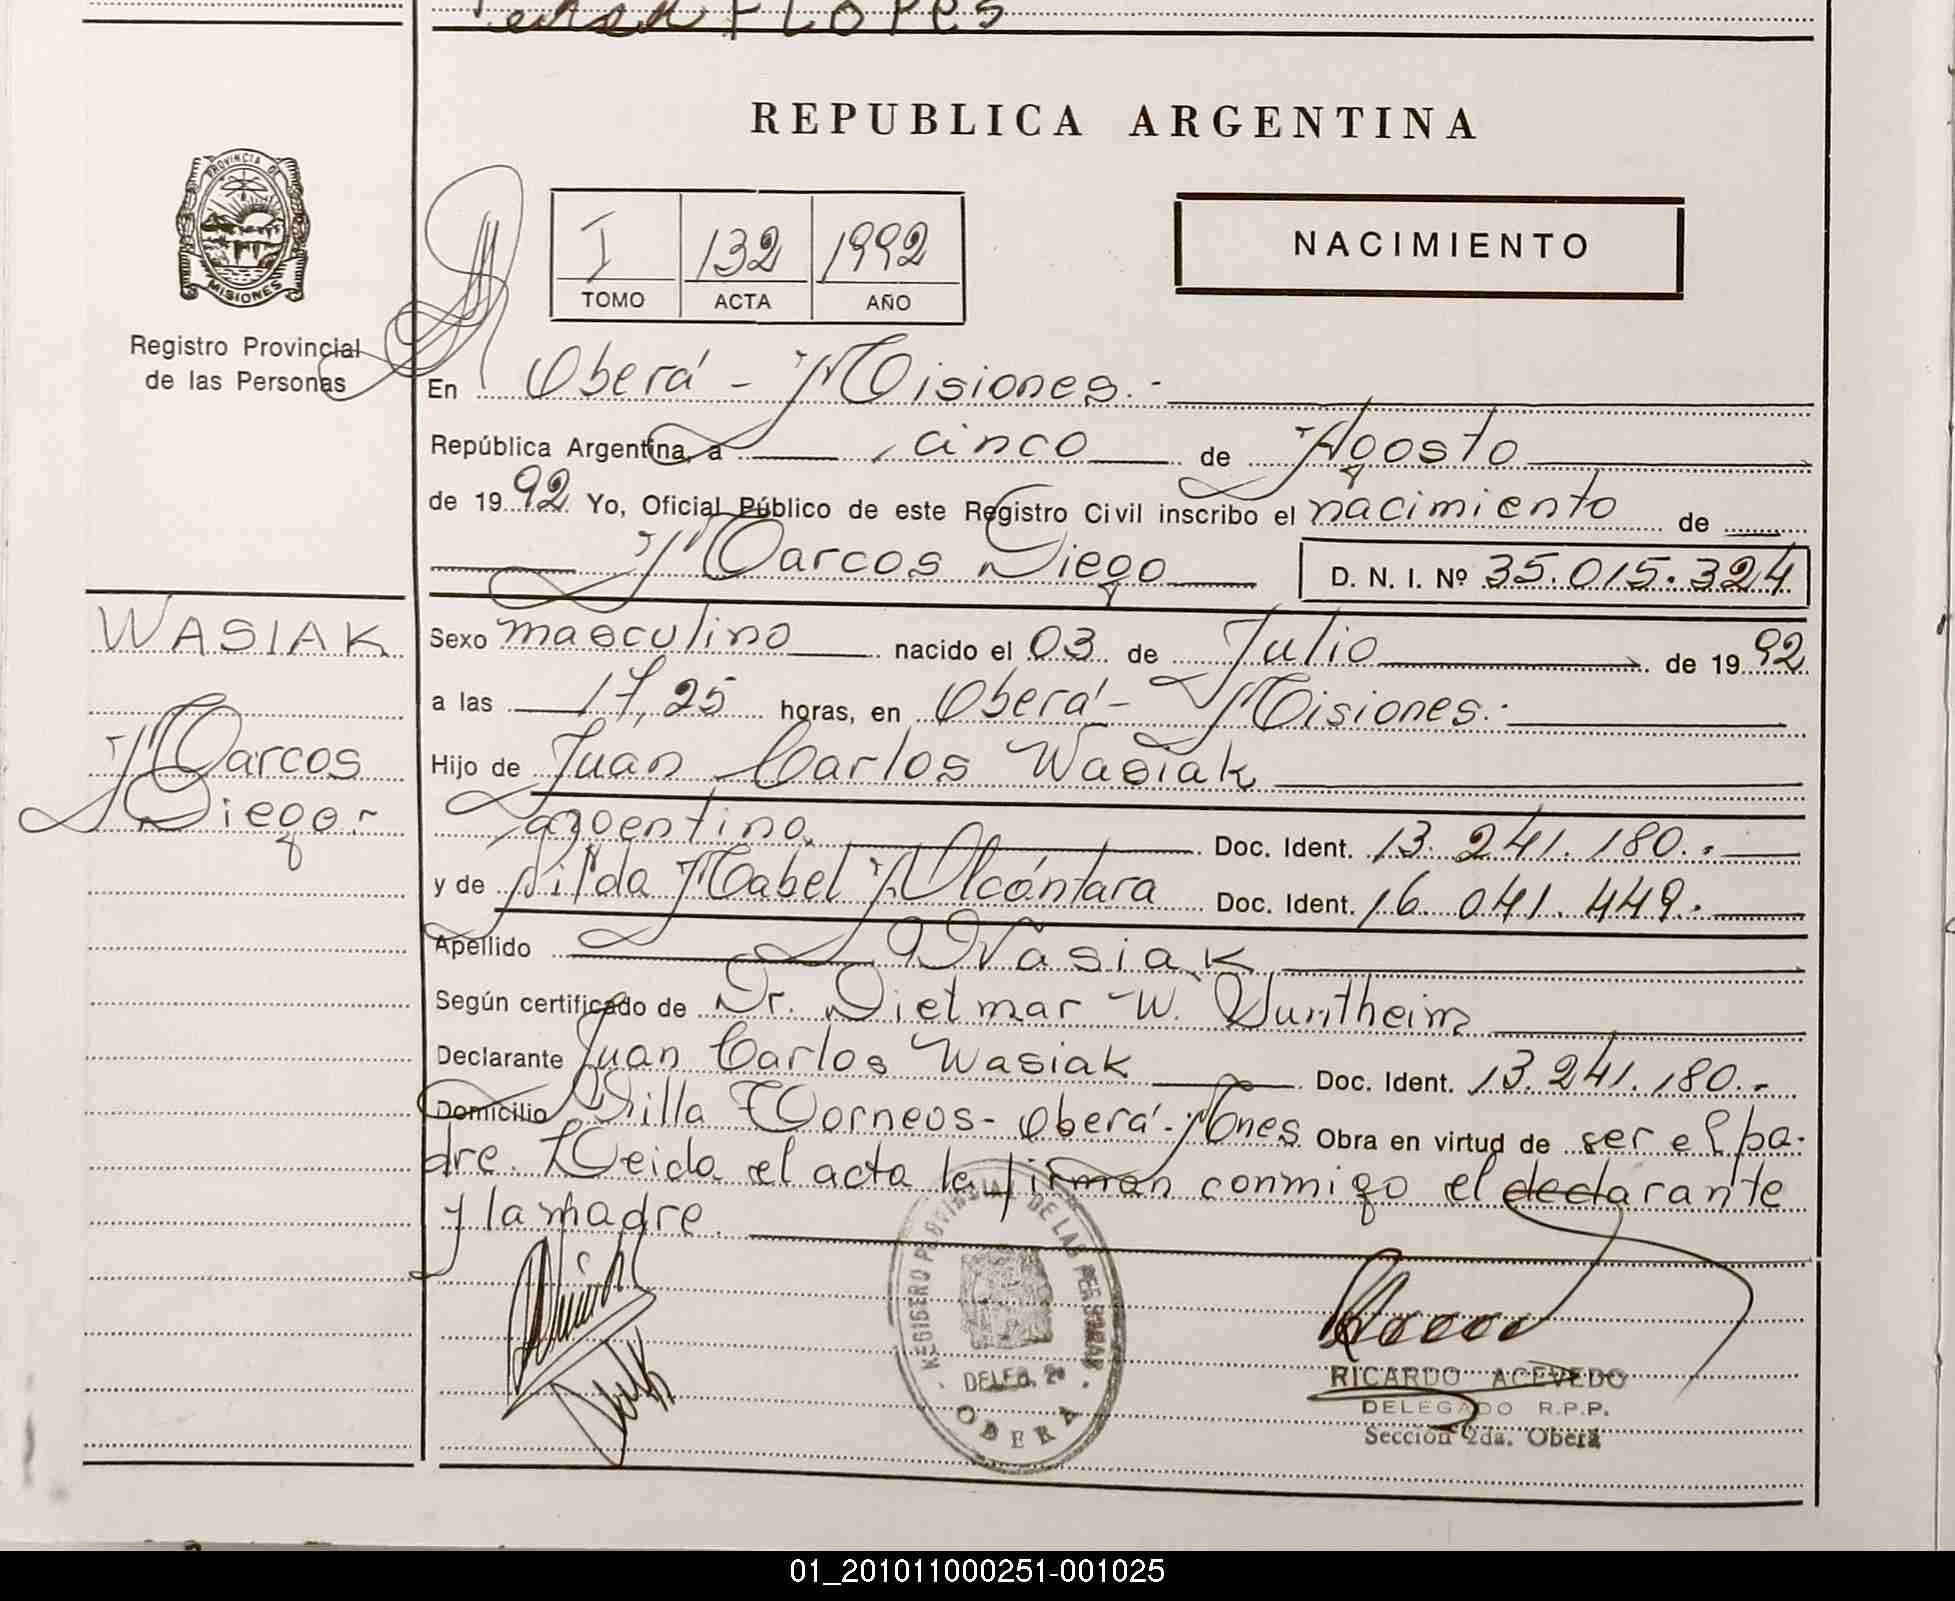 FLOPES
REPUBLICA ARGENTINA
PROVINCIA DE
MISIONES
Registro Provincial
de las Personas
I 132 1992
TOMO ACTA AÑO
NACIMIENTO
En Oberá - Misiones.-
República Argentina, a cinco de Agosto
de 1992 Yo, Oficial Público de este Registro Civil inscribo el nacimiento de
Marcos Diego D. N. I. Nº 35.015.324
WASIAK
Marcos
Diego.-
Sexo masculino nacido el 03 de Julio de 1992
a las 17,25 horas, en Oberá - Misiones.-
Hijo de Juan Carlos Wasiak
argentino. Doc. Ident. 13.241.180.-
y de Nilda Mabel Alcántara Doc. Ident. 16.041.449.-
Apellido Wasiak
Según certificado de Dr. Dietmar W.
Declarante Juan Carlos Wasiak Doc. Ident. 13.241.180.-
Domicilio Villa Torneos - Oberá - Mnes Obra en virtud de ser el pa-
dre. Leida el acta la firman conmigo el declarante
y la madre.
REGISTRO PROVINCIAL DE LAS PERSONAS
DELEG. 2ª
OBERA
RICARDO ACEVEDO
DELEGADO R.P.P.
Sección 2da. Oberá
01_201011000251-001025